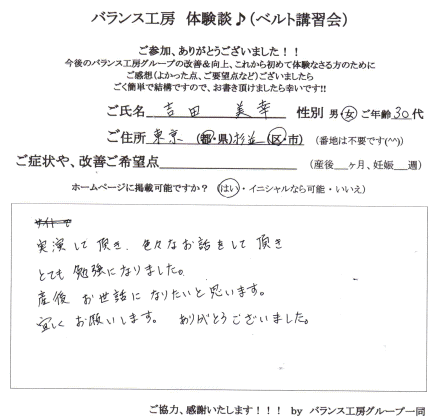 バランス工房 体験談♪(ベルト講習会)
ご参加、ありがとうございました！！
今後のバランス工房グループの改善&向上、これから初めて体験なさる方のために
ご感想(よかった点、ご要望点など)ございましたら
ごく簡単で結構ですので、お書き頂けましたら幸いです!!
ご氏名 吉田 美幸 性別 男・女 ご年齢30代
ご住所 東京 (都・県)杉並(区・市) (番地は不要です(^^))
ご症状や、改善ご希望点 (産後__ヶ月、妊娠__週)
ホームページに掲載可能ですか？ (はい・イニシャルなら可能・いいえ)
実演して頂き、色々なお話をして頂き
とても勉強になりました。
産後お世話になりたいと思います。
宜しくお願いします。 ありがとうございました。
ご協力、感謝いたします！！！ by バランス工房グループ一同